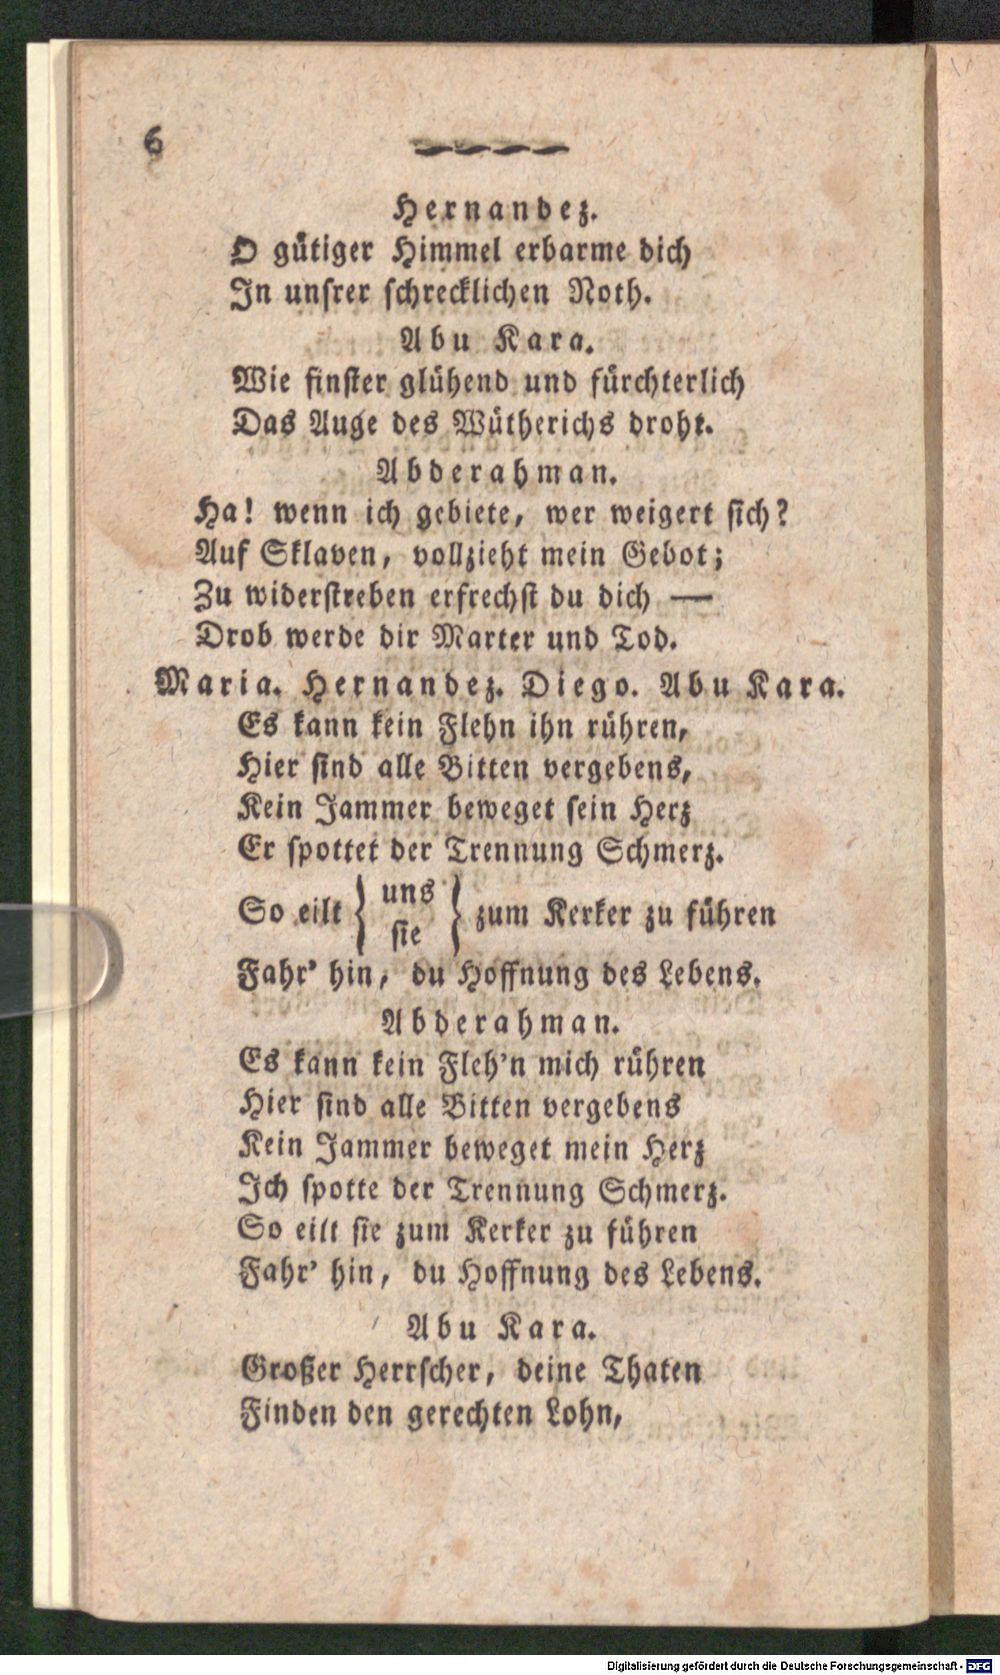 6
Hernandez.
O gütiger Himmel erbarme dich
In unsrer schrecklichen Noth.
Abu Kara.
Wie finster glühend und fürchterlich
Das Auge des Wütherichs droht.
Abderahman.
Ha! wenn ich gebiete, wer weigert sich?
Auf Sklaven, vollzieht mein Gebot;
Zu widerstreben erfrechst du dich —
Drob werde dir Marter und Tod.
Maria. Hernandez. Diego. Abu Kara.
Es kann kein Flehn ihn rühren,
Hier sind alle Bitten vergebens,
Kein Jammer beweget sein Herz
Er spottet der Trennung Schmerz.
So eilt } uns sie } zum Kerker zu führen
Fahr’ hin, du Hoffnung des Lebens.
Abderahman.
Es kann kein Fleh’n mich rühren
Hier sind alle Bitten vergebens
Kein Jammer beweget mein Herz
Ich spotte der Trennung Schmerz.
So eilt sie zum Kerker zu führen
Fahr’ hin, du Hoffnung des Lebens.
Abu Kara.
Großer Herrscher, deine Thaten
Finden den gerechten Lohn,
Digitalisierung gefördert durch die Deutsche Forschungsgemeinschaft - DFG